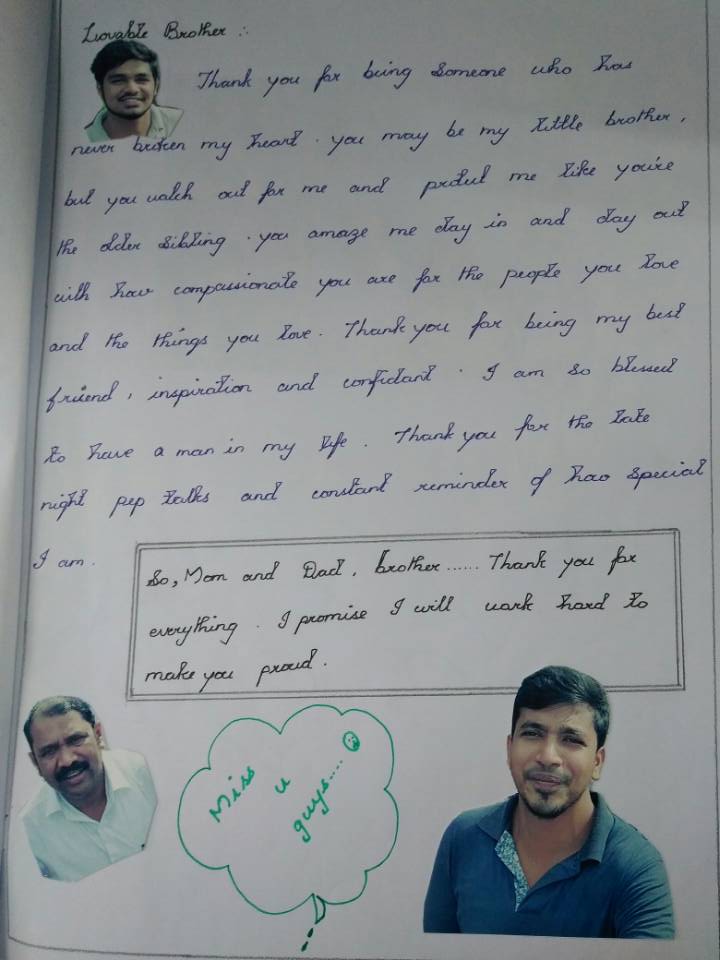 Lovable Brother :-
Thank you for being someone who has
never broken my heart. you may be my little brother,
but you watch out for me and protect me like you're
the older sibling. you amaze me day in and day out
with how compassionate you are for the people you love
and the things you love. Thank you for being my best
friend, inspiration and confidant. I am so blessed
to have a man in my life. Thank you for the late
night pep talks and constant reminder of how special
I am.
So, Mom and Dad, brother...... Thank you for
everything. I promise I will work hard to
make you proud.
Miss
u
guys....